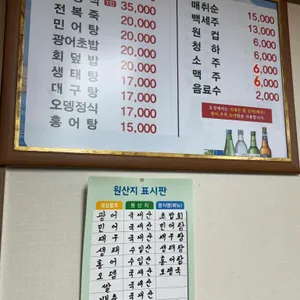 35,000
전복죽 20,000
민어탕 20,000
광어초밥 20,000
회덮밥 20,000
생태탕 17,000
대구탕 17,000
오뎅정식 17,000
홍어탕 15,000
매취순 15,000
백세주 13,000
원컵 6,000
청하 6,000
소주 6,000
맥주 6,000
음료수 2,000
원산지 표시판
원산지
광어 국내산 초밥회
민어 국내산 민어탕
대구 국내산 대구탕
생태 수입산 생태탕
홍어 수입산 홍어탕
오뎅 국내산 오뎅국
쌀 국내산
배추 국내산